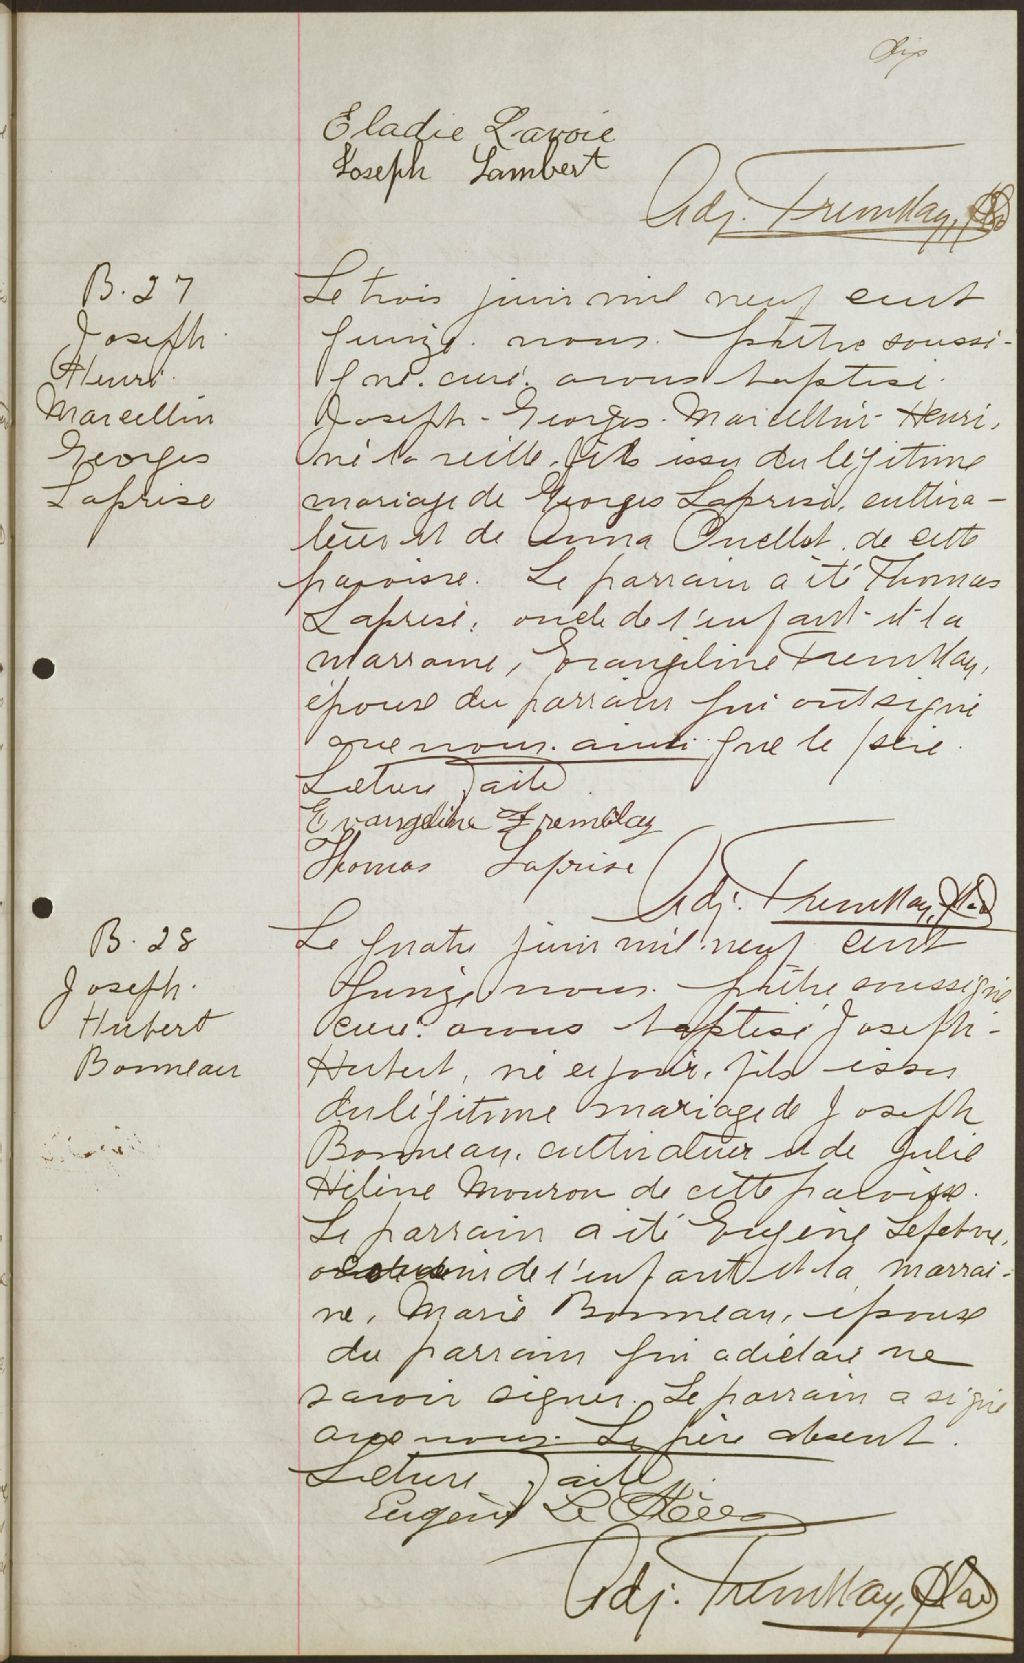 dix
Eladie Lavoie
Joseph Lambert
Adj. Tremblay, Ptre
B. 27
Joseph
Henri
Marcellin
Georges
Laprise
Le trois juin mil neuf cent
quinze nous prêtre soussi-
gné curé avons baptisé
Joseph-Georges-Marcellin-Henri,
né la veille, fils issu du légitime
mariage de Georges Laprise, cultiva-
teur et de Anna Ouellet de cette
paroisse. Le parrain a été Thomas
Laprise, oncle de l'enfant et la
marraine, Evangeline Tremblay,
épouse du parrain qui ont signé
avec nous ainsi que le père.
Lecture faite.
Evangeline Tremblay
Thomas Laprise
Adj. Tremblay, Ptre
B. 28
Joseph
Hubert
Bonneau
Le quatre juin mil neuf cent
quinze nous prêtre soussigné
curé avons baptisé Joseph-
Hubert, né ce jour, fils issu
du légitime mariage de Joseph
Bonneau, cultivateur et de Julie
Hélène Mourou de cette paroisse.
Le parrain a été Eugène Lefebvre,
de l'enfant et la marrai-
ne, Marie Bonneau, épouse
du parrain qui a déclaré ne
savoir signer. Le parrain a signé
avec nous. Le père absent.
Lecture faite.
Eugène Le
Adj. Tremblay, Ptre